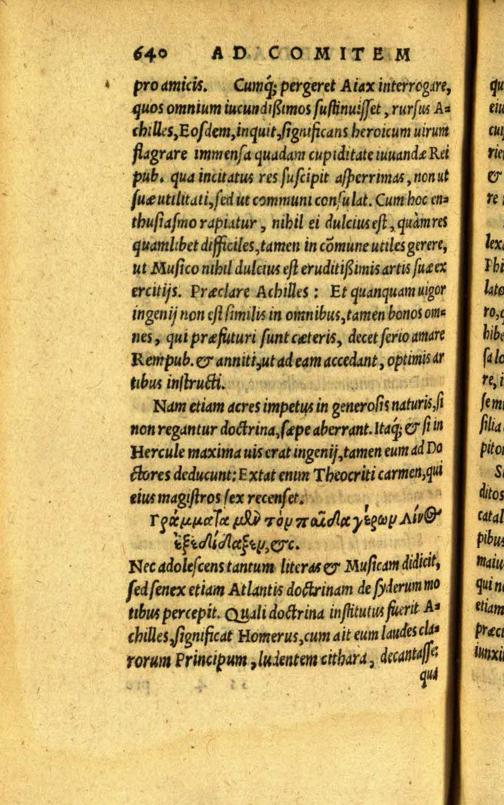 640 AD COMITEM
pro amicis. Cumq́; pergeret Aiax interrogare,
quos omnium iucundißimos sustinuisset, rursus A=
chilles, Eosdem, inquit, significans heroicum uirum
flagrare immensa quadam cupiditate iuuandæ Rei
pub. qua incitatus res suscipit asperrimas, non ut
suæ utilitati, sed ut communi consulat. Cum hoc en=
thusiasmo rapiatur, nihil ei dulcius est, quàm res
quamlibet difficiles, tamen in cõmune utiles gerere,
ut Musico nihil dulcius est eruditißimis artis suæ ex
ercitijs. Præclare Achilles: Et quanquam uigor
ingenij non est similis in omnibus, tamen bonos om=
nes, qui præfuturi sunt cæteris, decet serio amare
Rempub. & anniti, ut ad eam accedant, optimis ar
tibus instructi.
Nam etiam acres impetus in generosis naturis, si
non regantur doctrina, sæpe aberrant. Itaq́; & si in
Hercule maxima uis erat ingenij, tamen eum ad Do
ctores deducunt: Extat enim Theocriti carmen, qui
eius magistros sex recenset.
Γράμματα μὲν τὸν παῖδα γέρων Λίνος
ἐξεδίδαξεν, &c.
Nec adolescens tantum literas & Musicam didicit,
sed senex etiam Atlantis doctrinam de syderum mo
tibus percepit. Quali doctrina institutus fuerit A=
chilles, significat Homerus, cum ait eum laudes cla=
rorum Principum, ludentem cithara, decantasse:
qui